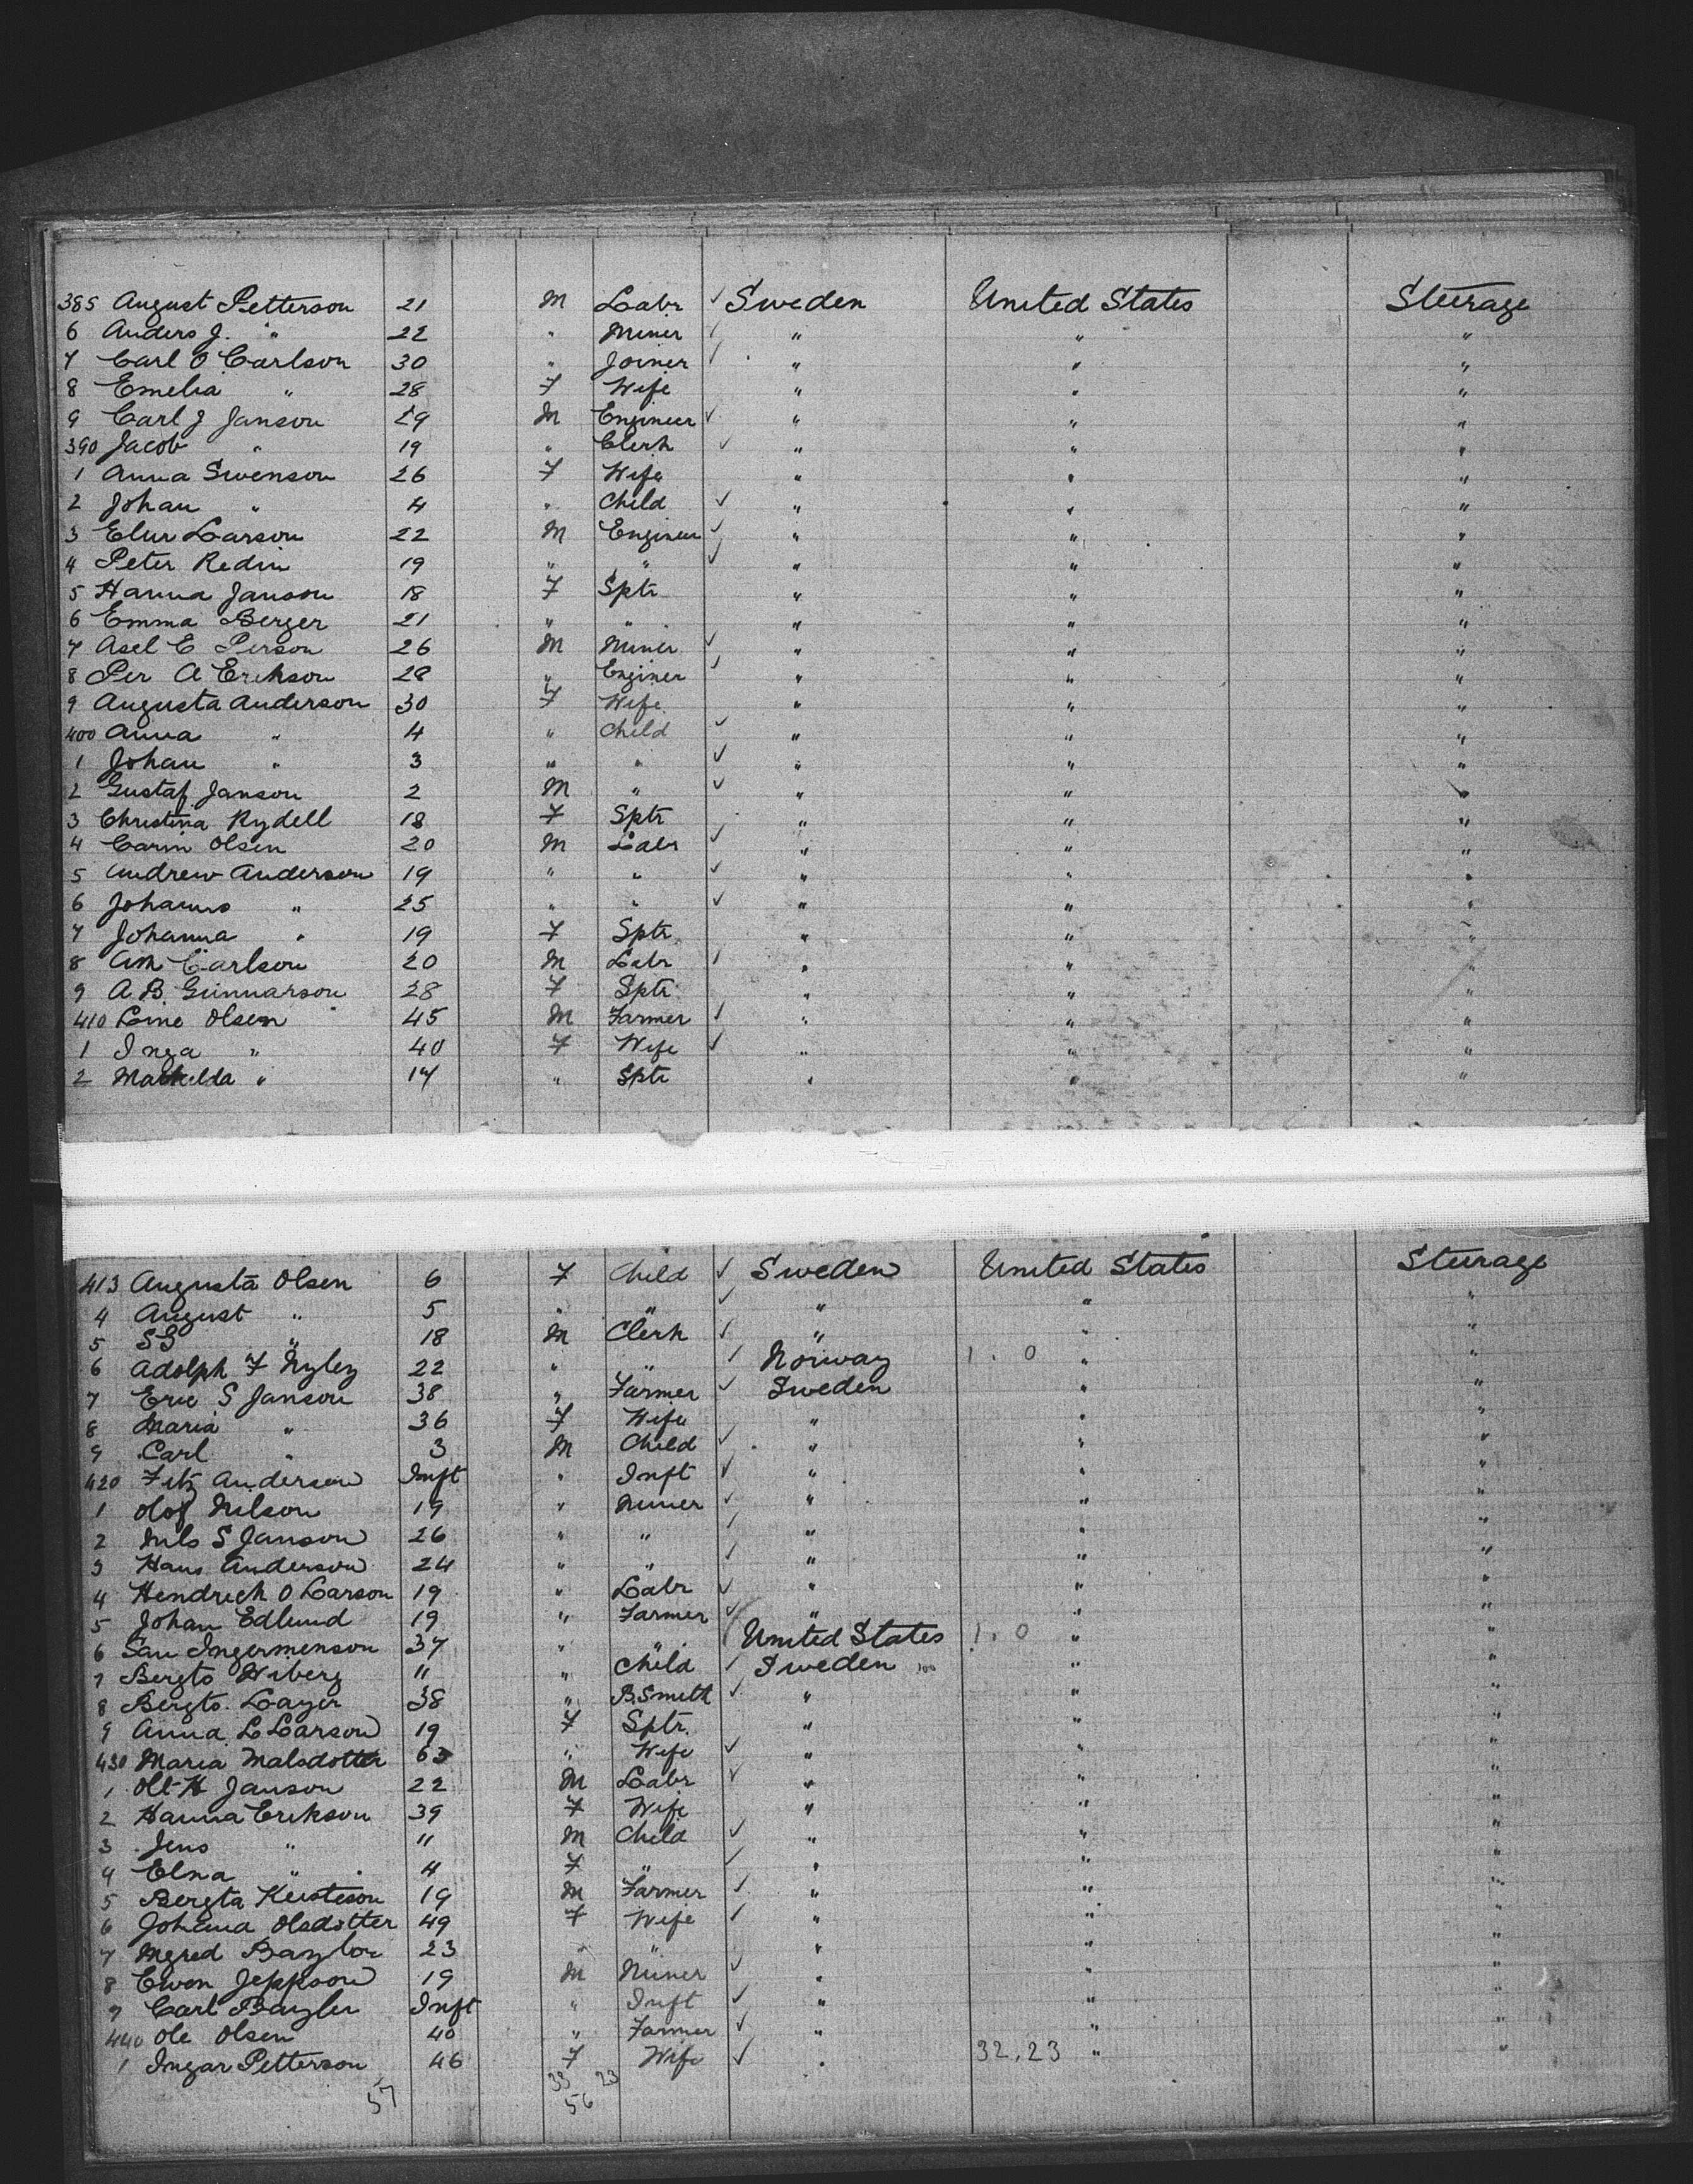 385 August Petterson 21 M Labr ✓ Sweden United States Steerage
6 Anders J. " 22 " Miner ✓ " " "
7 Carl O Carlson 30 " Joiner ✓ " " "
8 Emelia " 28 F Wife " " "
9 Carl J Janson 29 M Engineer ✓ " " "
390 Jacob " 19 " Clerk ✓ " " "
1 Anna Swenson 26 F Wife " " "
2 Johan " 4 " Child ✓ " " "
3 Elur Larson 22 M Engineer ✓ " " "
4 Peter Redin 19 " " ✓ " " "
5 Hanna Janson 18 F Sptr " " "
6 Emma Berger 21 " " " " "
7 Axel E Person 26 M Miner ✓ " " "
8 Per A Erikson 28 " Enginer ✓ " " "
9 Augusta Anderson 30 F Wife " " "
400 Anna " 4 " Child ✓ " " "
1 Johan " 3 " " ✓ " " "
2 Gustaf Janson 2 M " ✓ " " "
3 Christina Rydell 18 F Sptr " " "
4 Carin Olsen 20 M Labr ✓ " " "
5 Andrew Anderson 19 " " ✓ " " "
6 Johannes " 25 " " ✓ " " "
7 Johanna " 19 F Sptr " " "
8 AM Carlson 20 M Labr ✓ " " "
9 A.B. Gunnarson 28 F Sptr " " "
410 Line Olsen 45 M Farmer ✓ " " "
1 Inga " 40 F Wife ✓ " " "
2 Mathilda " 17 " Sptr " " "
413 Augusta Olsen 6 F Child ✓ Sweden United States Steerage
4 August " 5 " " ✓ " " "
5 SG " 18 M Clerk ✓ " " "
6 Adolph F 22 " " ✓ Norway 1.0 " "
7 Eric S Janson 38 " Farmer ✓ Sweden " "
8 Maria " 36 F Wife " " "
9 Carl " 3 M Child ✓ " " "
420 Fitz Anderson Inft " Inft ✓ " " "
1 Olof Nilson 19 " Miner ✓ " " "
2 Nils S Janson 26 " " ✓ " " "
3 Hans Anderson 24 " " ✓ " " "
4 Hendrick O Larson 19 " Labr ✓ " " "
5 Johan Edlund 19 " Farmer ✓ " " "
6 San Ingermenson 37 " " ✓ United States 1.0 " "
7 Bergto Wiberg 11 " Child ✓ Sweden " "
8 Bergto. Layer 38 " B.Smith ✓ " " "
9 Anna L Larson 19 F Sptr. " " "
430 Maria Malsdotter 63 " Wife ✓ " " "
1 Olt H Janson 22 M Labr ✓ " " "
2 Hanna Erikson 39 F Wife " " "
3 Jens " 11 M Child ✓ " " "
4 Elna " 4 F " ✓ " " "
5 Bergta 19 M Farmer ✓ " " "
6 Johanna Olsdotter 49 F Wife ✓ " " "
7 Ingred Baylor 23 " " " " "
8 Ewon Jeppson 19 M Miner ✓ " " "
9 Carl Bayler Inft " Inft ✓ " " "
440 Ole Olsen 40 " Farmer ✓ " " "
1 Ingar Petterson 46 F Wife ✓ " 32,23 " "
33 23
57 56